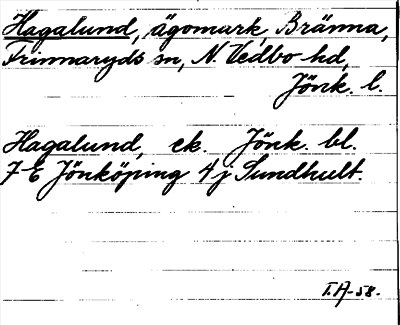 Hagalund, ägomark, Bränna,
Frinnaryds sn, N. Vedbo hd,
Jönk. l.
Hagalund, ek. Jönk. bl.
7 E Jönköping 4j Sundhult.
T.A-58.